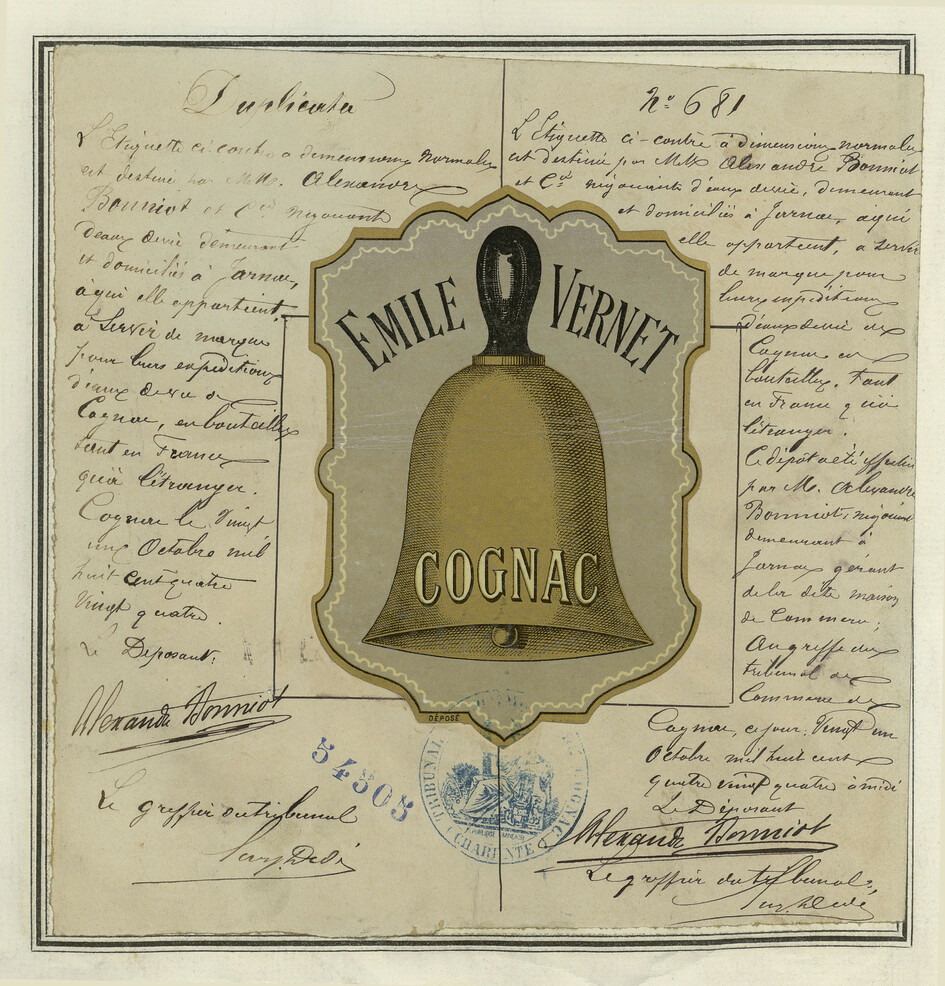 Duplicata
L'Etiquette ci contre a dimensions normales
est destinée par MM. Alexandre
Bonniot et Cie négociants
d'eaux de vie demeurant
et domiciliés à Jarnac,
à qui elle appartient,
à servir de marque
pour leurs expéditions
d'eaux de vie de
Cognac, en bouteilles
tant en France
qu'à l'étranger.
Cognac le Vingt
un Octobre mil
huit cent quatre
Vingt quatre.
Le Déposant.
Alexandre Bonniot
Le greffier du tribunal
No 681
L'Etiquette ci-contre à dimensions normales
est destinée par MM. Alexandre Bonniot
et Cie négociants d'eaux de vie, demeurant
et domiciliés à Jarnac, à qui
elle appartient, a servir
de marque pour
leurs expéditions
d'eaux de vie de
Cognac en
bouteilles. Tant
en France qu'à
l'étranger.
Ce dépôt a été effectué
par M. Alexandre
Bonniot, négociant
demeurant à
Jarnac gérant
de la dite maison
de Commerce,
Au greffe du
tribunal de
Commerce de
Cognac, ce jour Vingt un
Octobre mil huit cent
quatre vingt quatre à midi
Le Déposant
Alexandre Bonniot
Le greffier du tribunal,
EMILE VERNET
COGNAC
DÉPOSÉ
54305
TRIBUNAL DE COMMERCE DE COGNAC
CHARENTE